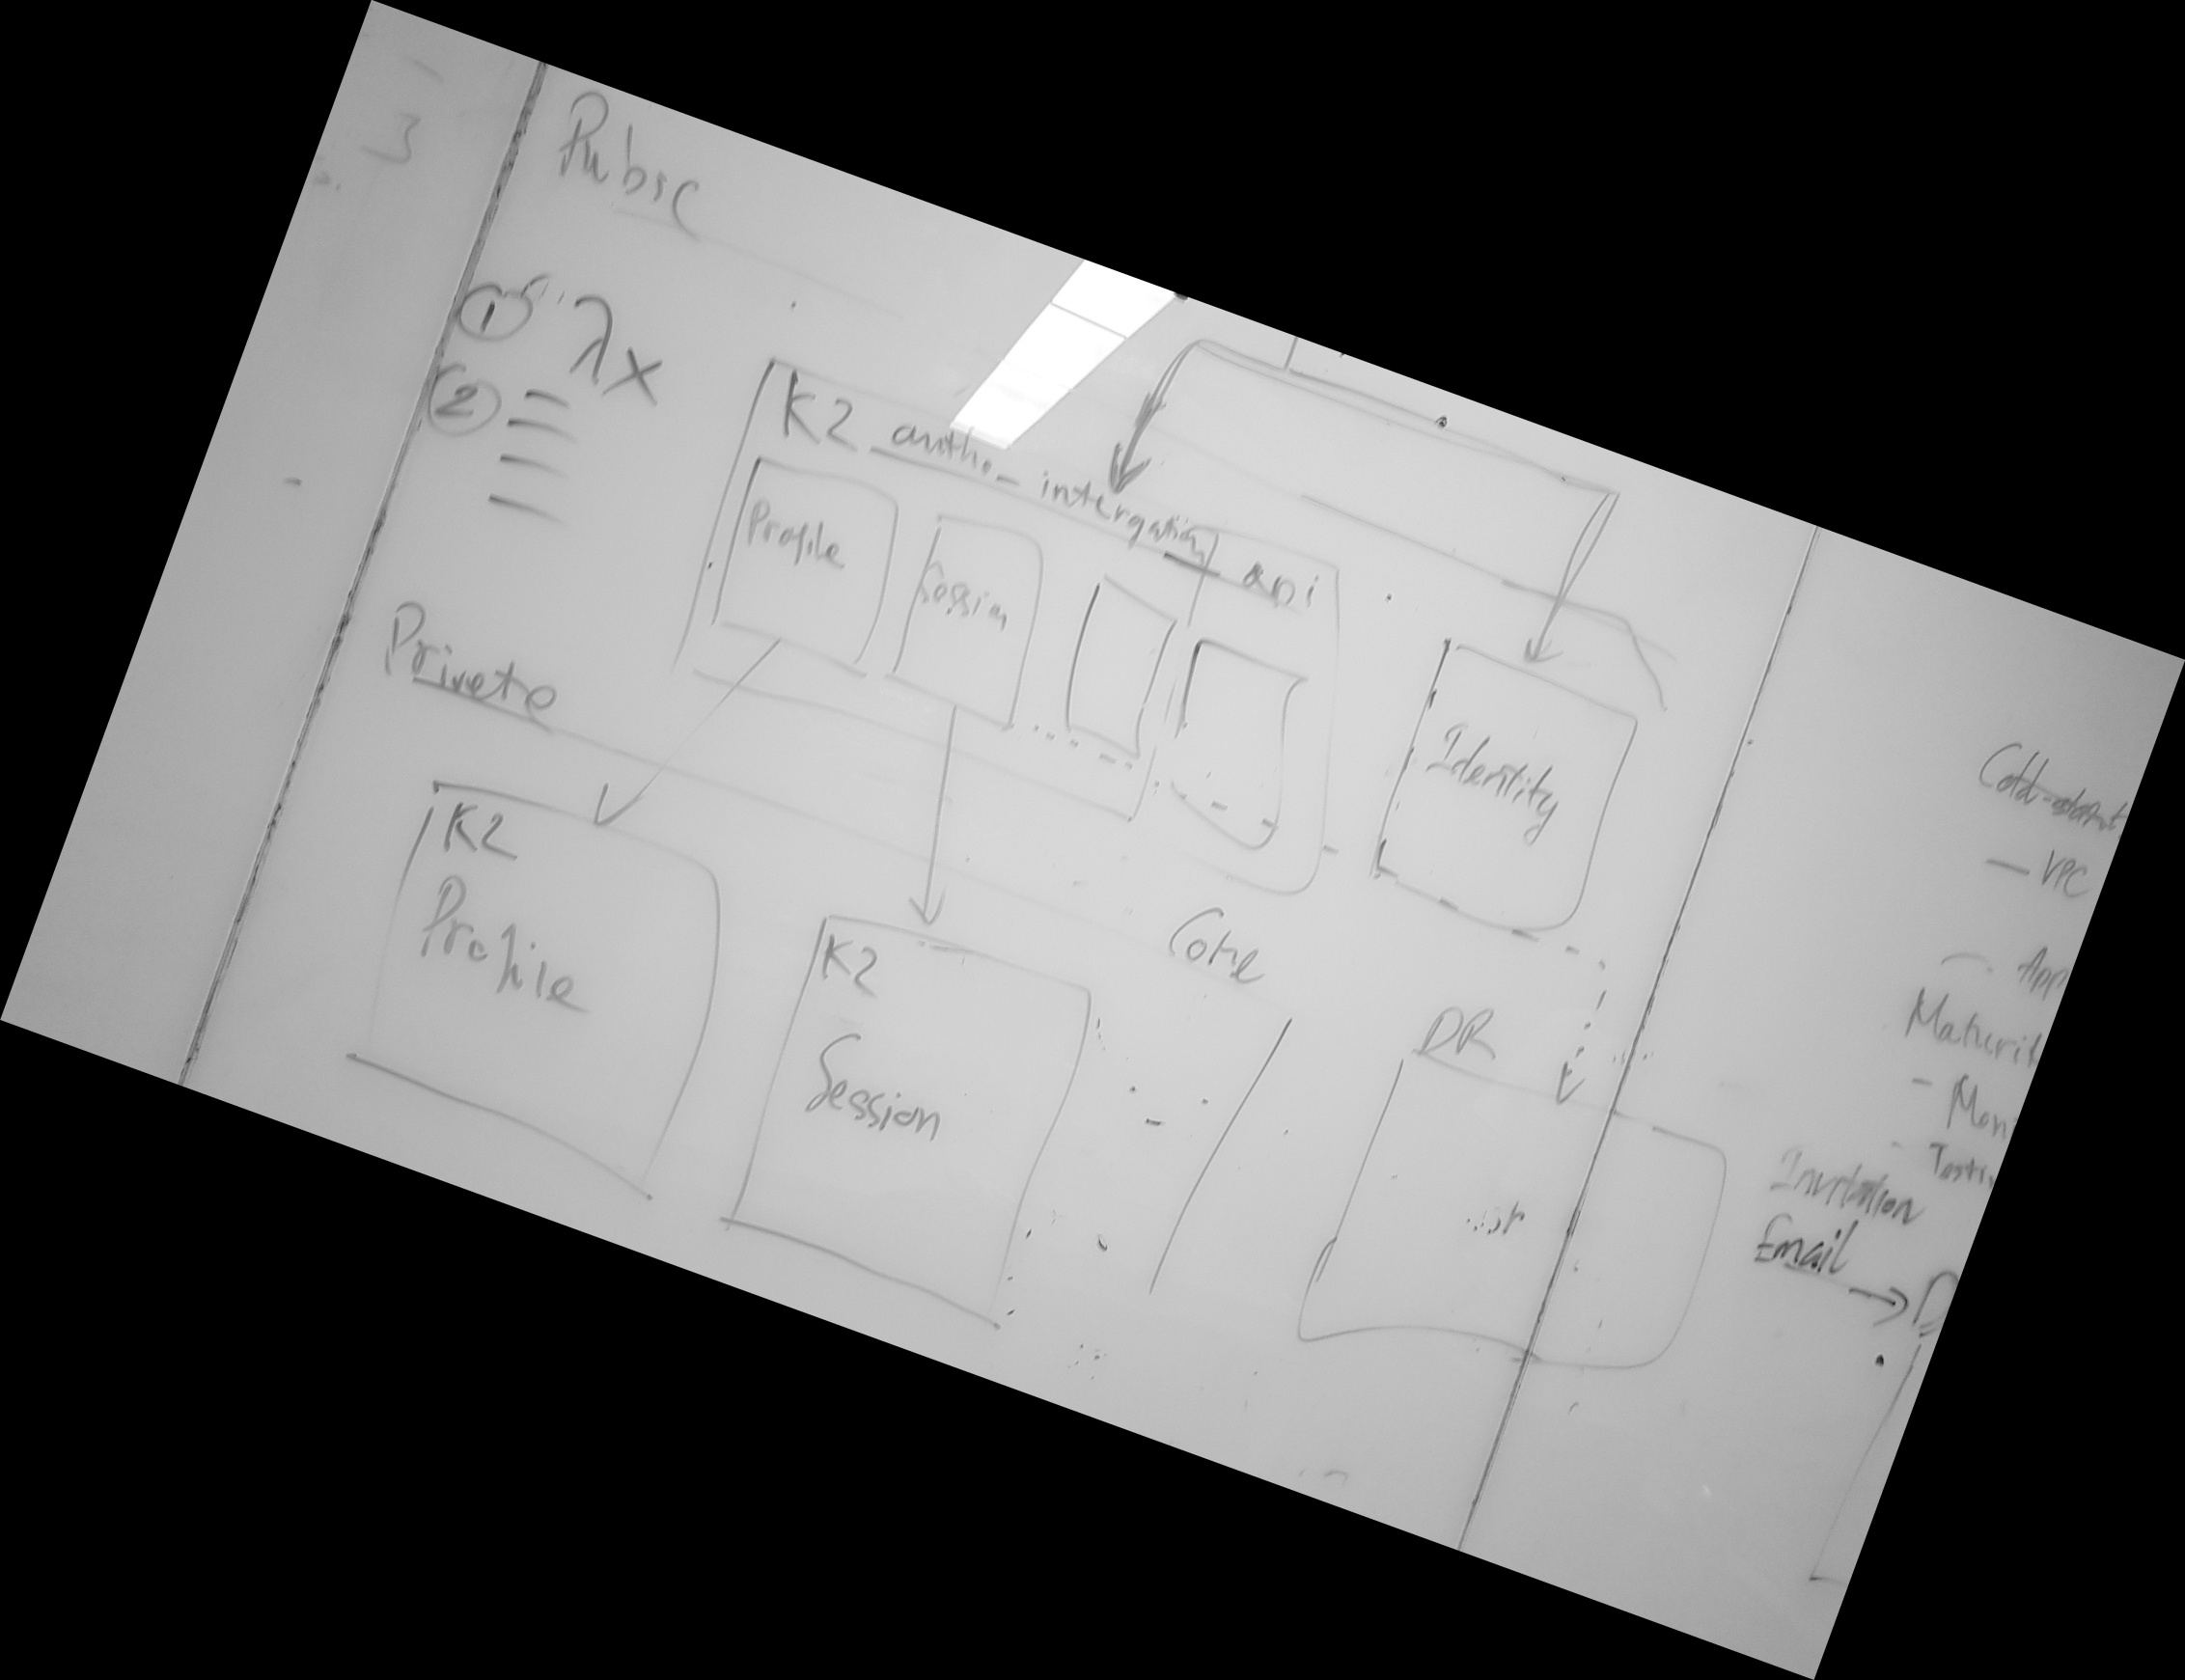 3
Pubsc
① λx
②
K2 autho-intergation api
Profile
Session
Identity
Privete
K2
Profile
K2
Session
Core
DR
Cold-start
- VPC
- App
Maturit
- Mon
- Testi
Invitation
Email →